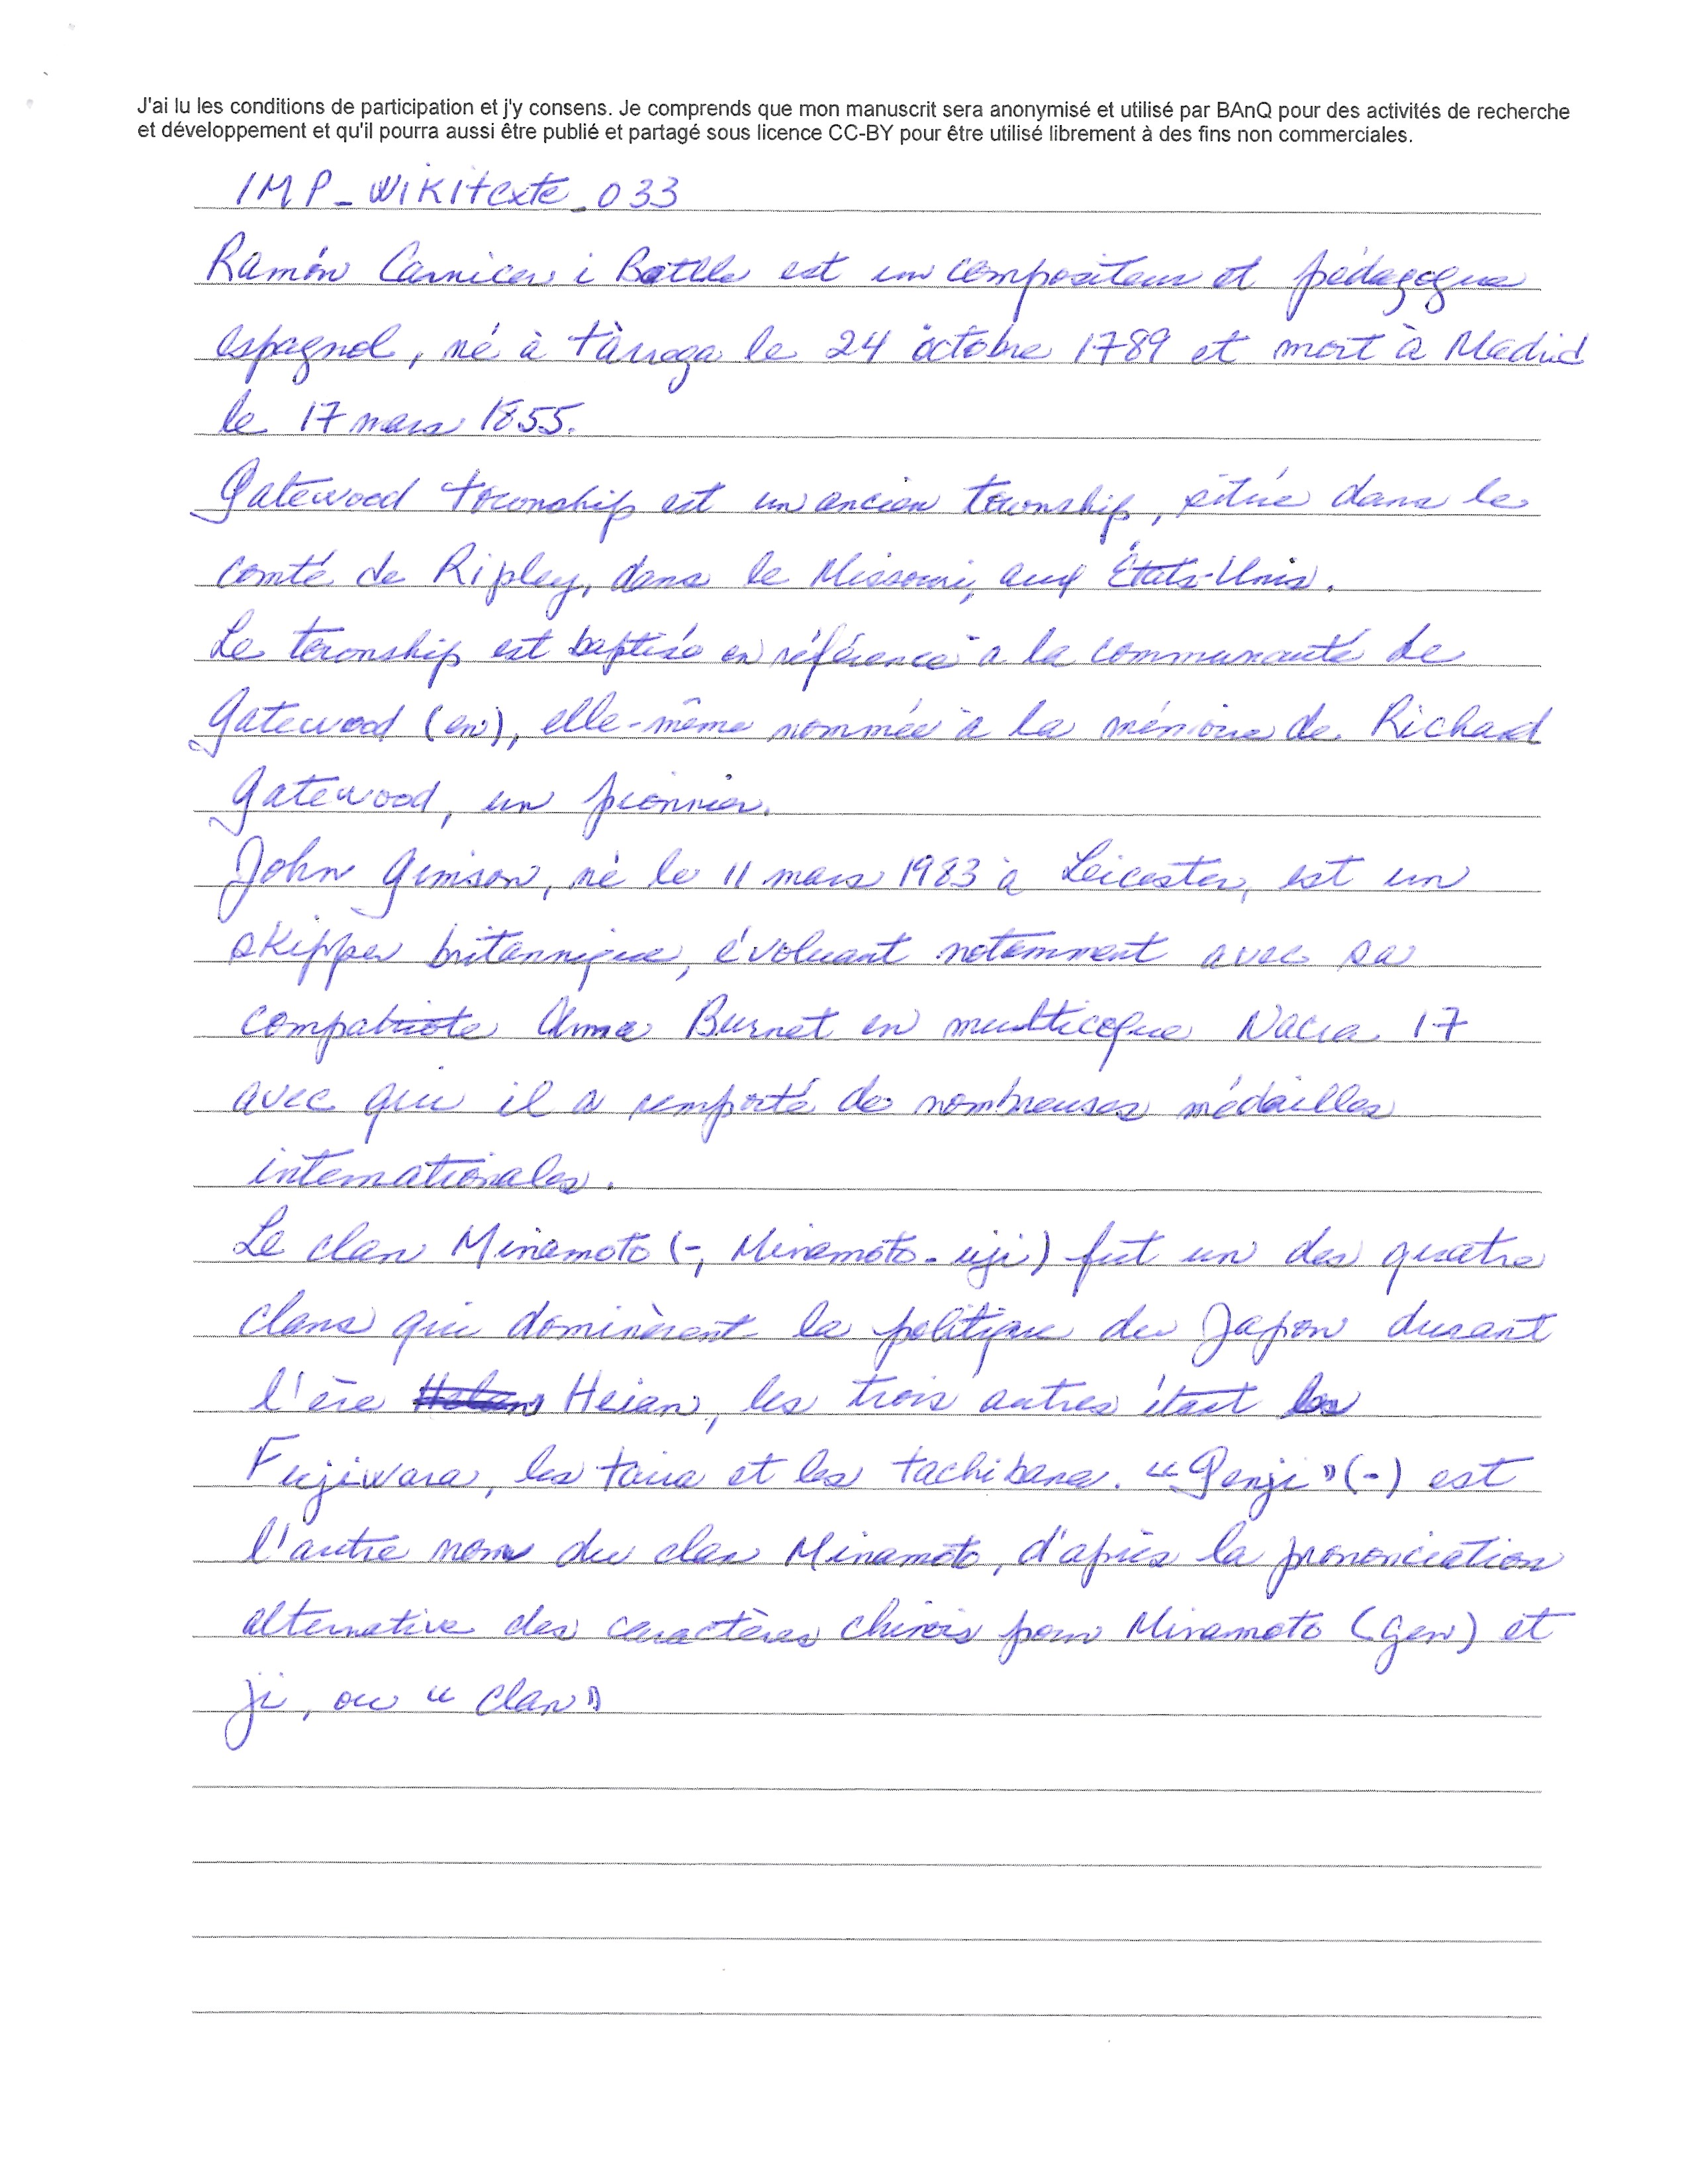 J'ai lu les conditions de participation et j'y consens. Je comprends que mon manuscrit sera anonymisé et utilisé par BAnQ pour des activités de recherche
et développement et qu'il pourra aussi être publié et partagé sous licence CC-BY pour être utilisé librement à des fins non commerciales.
IMP_WIKITexte_033
Ramón Carnicer i Batlle est un compositeur et pédagogue
espagnol, né à Tàrrega le 24 octobre 1789 et mort à Madrid
le 17 mars 1855.
Gatewood Township est un ancien township, situé dans le
comté de Ripley, dans le Missouri, aux États-Unis.
Le township est baptisé en référence à la communauté de
Gatewood (en), elle-même nommée à la mémoire de Richard
Gatewood, un pionnier.
John Gimson, né le 11 mars 1983 à Leicester, est un
skipper britannique, évoluant notamment avec sa
compatriote Anna Burnet en multicoque Nacra 17
avec qui il a remporté de nombreuses médailles
internationales.
Le clan Minamoto (-, Minamoto-uji) fut un des quatre
clans qui dominèrent la politique du Japon durant
l'ère Heian, les trois autres étant les
Fujiwara, les Taira et les Tachibana. « Genji » (-) est
l'autre nom du clan Minamoto, d'après la prononciation
alternative des caractères chinois pour Minamoto (gen) et
ji, ou « clan »